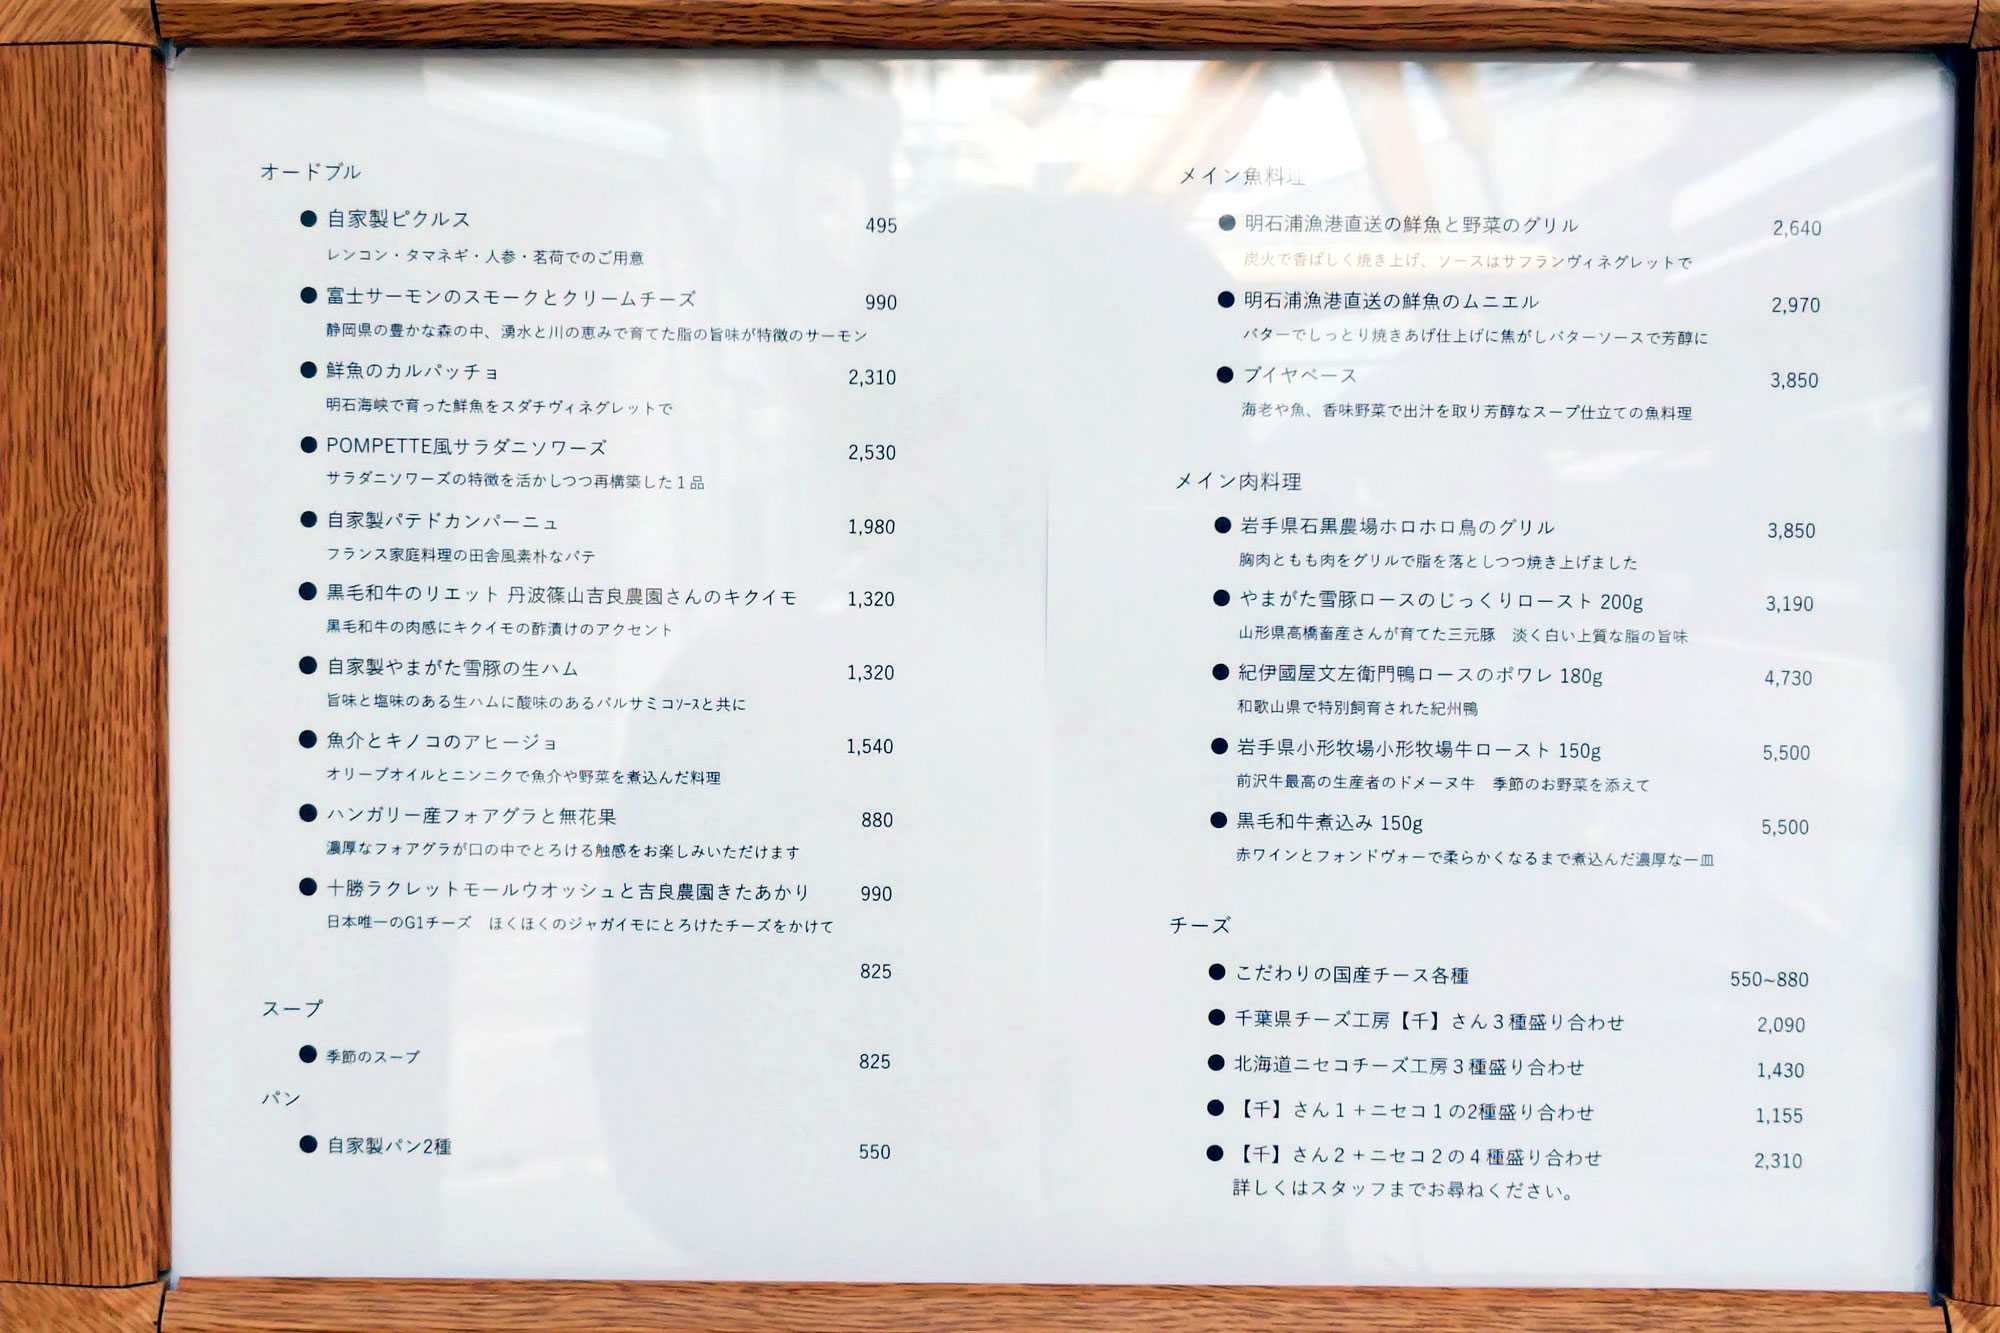 オードブル
● 自家製ピクルス 495
レンコン・タマネギ・人参・茗荷でのご用意
● 富士サーモンのスモークとクリームチーズ 990
静岡県の豊かな森の中、湧水と川の恵みで育てた脂の旨味が特徴のサーモン
● 鮮魚のカルパッチョ 2,310
明石海峡で育った鮮魚をスダチヴィネグレットで
● POMPETTE風サラダニソワーズ 2,530
サラダニソワーズの特徴を活かしつつ再構築した１品
● 自家製パテドカンパーニュ 1,980
フランス家庭料理の田舎風素朴なパテ
● 黒毛和牛のリエット 丹波篠山吉良農園さんのキクイモ 1,320
黒毛和牛の肉感にキクイモの酢漬けのアクセント
● 自家製やまがた雪豚の生ハム 1,320
旨味と塩味のある生ハムに酸味のあるバルサミコｿｰｽと共に
● 魚介とキノコのアヒージョ 1,540
オリーブオイルとニンニクで魚介や野菜を煮込んだ料理
● ハンガリー産フォアグラと無花果 880
濃厚なフォアグラが口の中でとろける触感をお楽しみいただけます
● 十勝ラクレットモールウオッシュと吉良農園きたあかり 990
日本唯一のG1チーズ　ほくほくのジャガイモにとろけたチーズをかけて
825
スープ
● 季節のスープ 825
パン
● 自家製パン2種 550
メイン魚料理
● 明石浦漁港直送の鮮魚と野菜のグリル 2,640
炭火で香ばしく焼き上げ、ソースはサフランヴィネグレットで
● 明石浦漁港直送の鮮魚のムニエル 2,970
バターでしっとり焼きあげ仕上げに焦がしバターソースで芳醇に
● ブイヤベース 3,850
海老や魚、香味野菜で出汁を取り芳醇なスープ仕立ての魚料理
メイン肉料理
● 岩手県石黒農場ホロホロ鳥のグリル 3,850
胸肉ともも肉をグリルで脂を落としつつ焼き上げました
● やまがた雪豚ロースのじっくりロースト 200g 3,190
山形県高橋畜産さんが育てた三元豚　淡く白い上質な脂の旨味
● 紀伊國屋文左衛門鴨ロースのポワレ 180g 4,730
和歌山県で特別飼育された紀州鴨
● 岩手県小形牧場小形牧場牛ロースト 150g 5,500
前沢牛最高の生産者のドメーヌ牛　季節のお野菜を添えて
● 黒毛和牛煮込み 150g 5,500
赤ワインとフォンドヴォーで柔らかくなるまで煮込んだ濃厚な一皿
チーズ
● こだわりの国産チース各種 550~880
● 千葉県チーズ工房【千】さん３種盛り合わせ 2,090
● 北海道ニセコチーズ工房３種盛り合わせ 1,430
● 【千】さん１＋ニセコ１の2種盛り合わせ 1,155
● 【千】さん２＋ニセコ２の４種盛り合わせ 2,310
詳しくはスタッフまでお尋ねください。